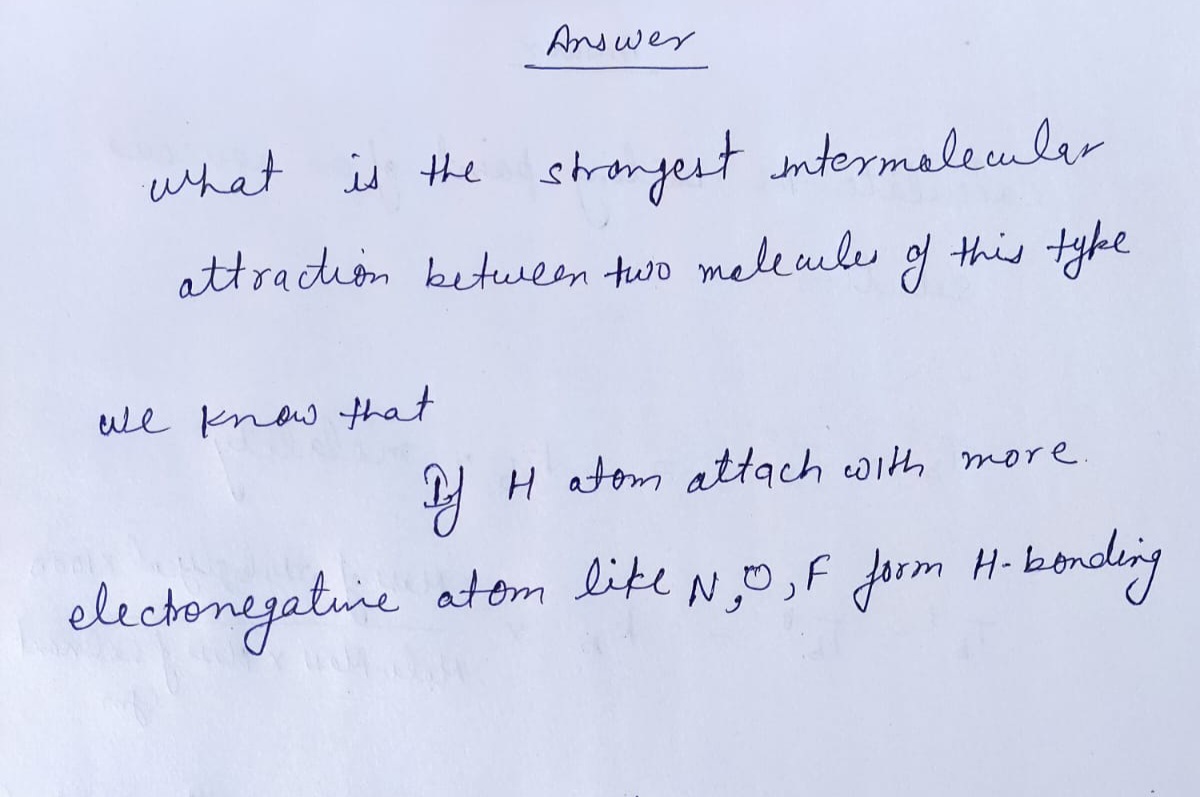 Answer
what is the strongest intermolecular
attraction between two molecules of this type
we know that
If H atom attach with more.
electronegative atom like N,O,F form H-bonding